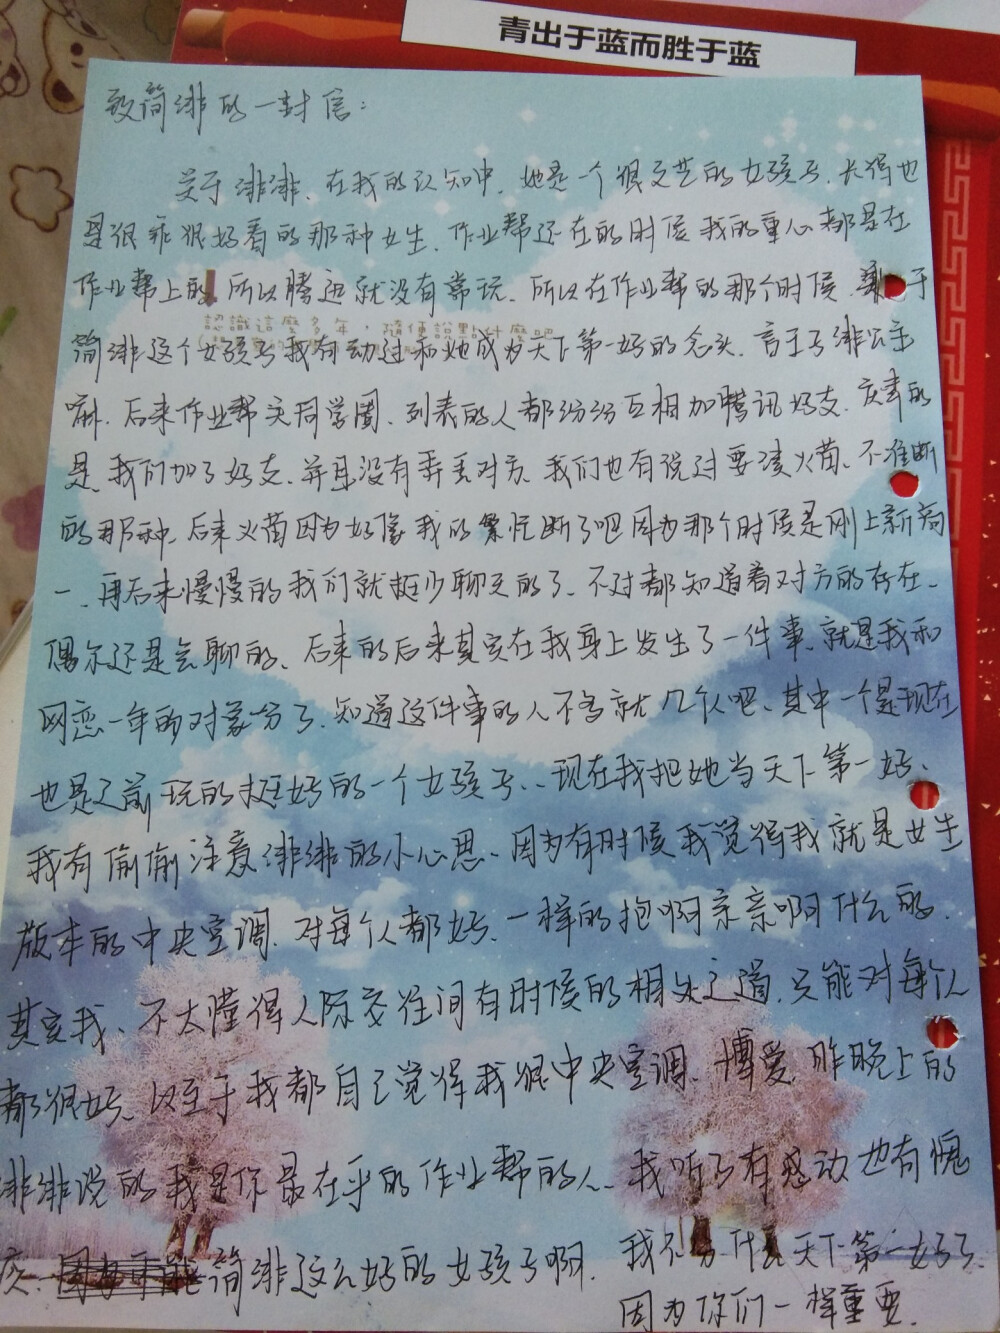 青出于蓝而胜于蓝
致简渄的一封信:
关于渄渄、在我的认知中、她是一个很文艺的女孩子、长得也
是很乖很好看的那种女生、作业帮还在的时候我的重心都是在
作业帮上的 所以腾迅就没有常玩、所以在作业帮的那个时候、 于
認識這麼多年，隨便說點什麼吧
简渄这个女孩子我有动过和她成为天下第一好的念头、 渄公主
嘛、后来作业帮关同学圈、列表的人都纷纷互相加腾讯好友、庆幸的
是我们加了好友、并且没有弄丢对方、我们也有说过要凑火苗、不准断
的那种、后来火苗因为好像我的繁忙断了吧因为那个时候是刚上新高
一、再后来慢慢的我们就挺少聊天的了、不过都知道着对方的存在、
偶尔还是会聊的、后来的后来其实在我身上发生了一件事、就是我和
网恋一年的对象分了、知道这件事的人不多就几个人吧、其中一个是现在
也是之前玩的挺好的一个女孩子、、现在我把她当天下第一好、
我有偷偷注意渄渄的小心思、因为有时候我觉得我就是女生
版本的中央空调、对每个人都好、一样的抱啊亲亲啊什么的、
其实我、不太懂得人际交往间有时候的相处之道、只能对每个人
都很好、以至于我都自己觉得我很中央空调、博爱、昨晚上的
渄渄说的我是你最在乎的作业帮的人、我听了有感动也有愧
疚、简渄这么好的女孩子啊、我不分什么天下第一好了、
因为你们一样重要、